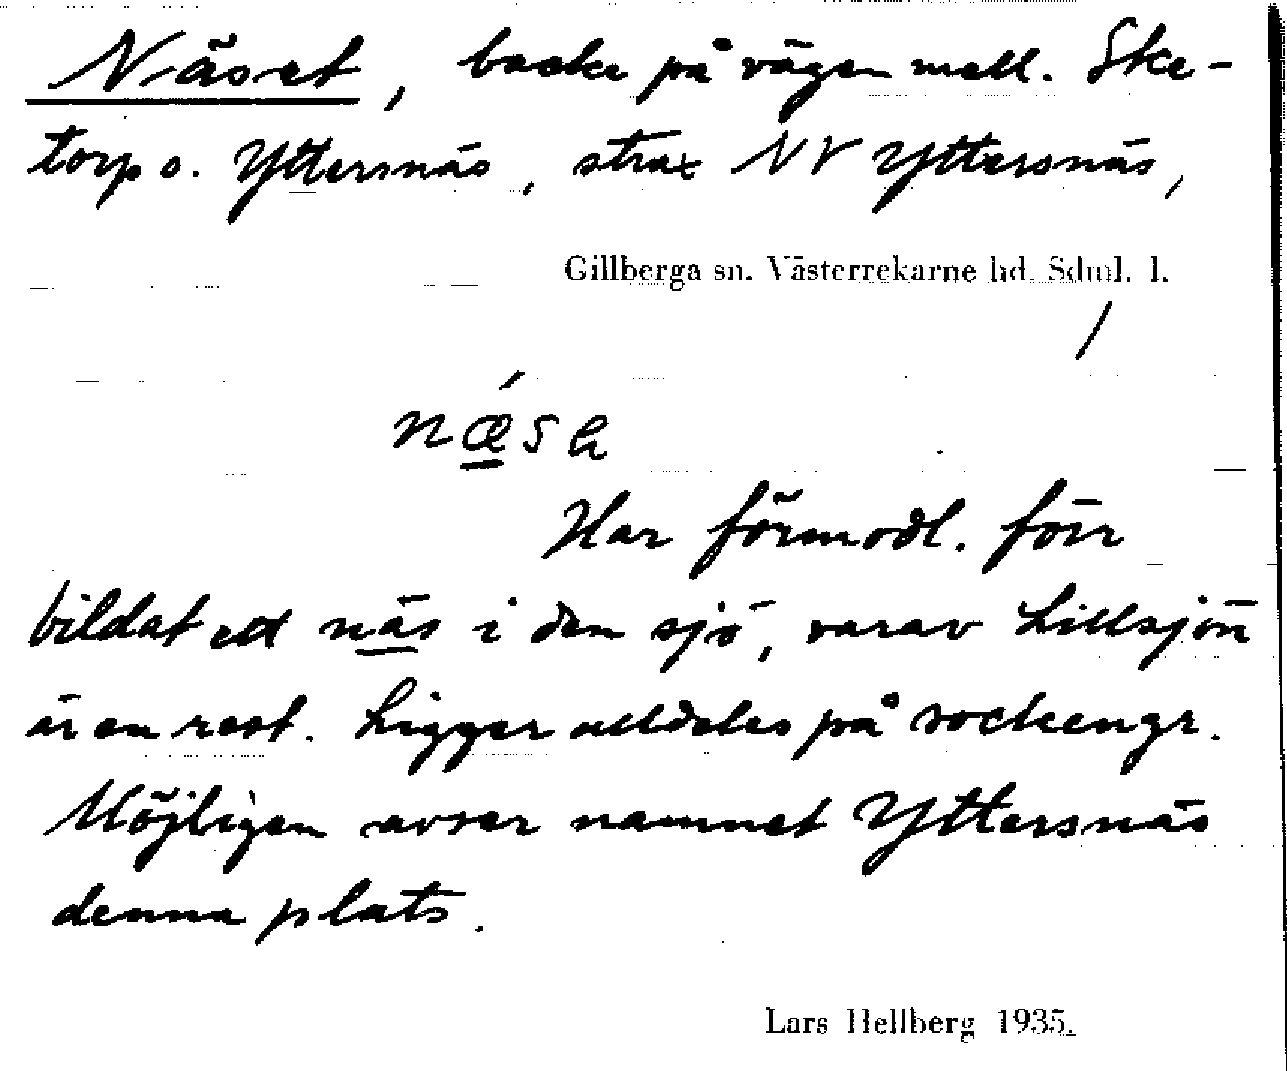 Näset, backe på vägen mell. Ske-
torp o. Yttersnäs, strax NV Yttersnäs,
Gillberga sn. Västerrekarne hd. Sdml. l.
/
Har förmodl. förr
bildat ett näs i den sjö, varav Lillsjön
är en rest. Ligger alldeles på sockengr.
Möjligen avser namnet Yttersnäs
denna plats.
Lars Hellberg 1935.